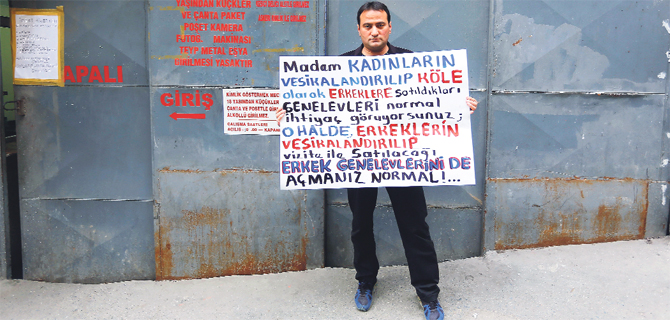 KAPALI
YAŞINDAN KÜÇKLER
VE ÇANTA PAKET
POŞET KAMERA
MAKİNASI
TEYP METAL EŞYA
GİRİLMESİ YASAKTIR
GİRİŞ
18 YAŞINDAN KÜÇÜKLER
ALKOLLÜ GİRİLMEZ.
ÇALIŞMA SAATLERİ
Madem KADINLARIN
VESİKALANDIRILIP KÖLE
olarak ERKEKLERE Satıldıkları
GENELEVLERİ normal
ihtiyaç görüyorsunuz;
O HALDE, ERKEKLERİN
VESİKALANDIRILIP
vizite ile Satılacağı
ERKEK GENELEVLERİNİ DE
AÇMANIZ NORMAL!...